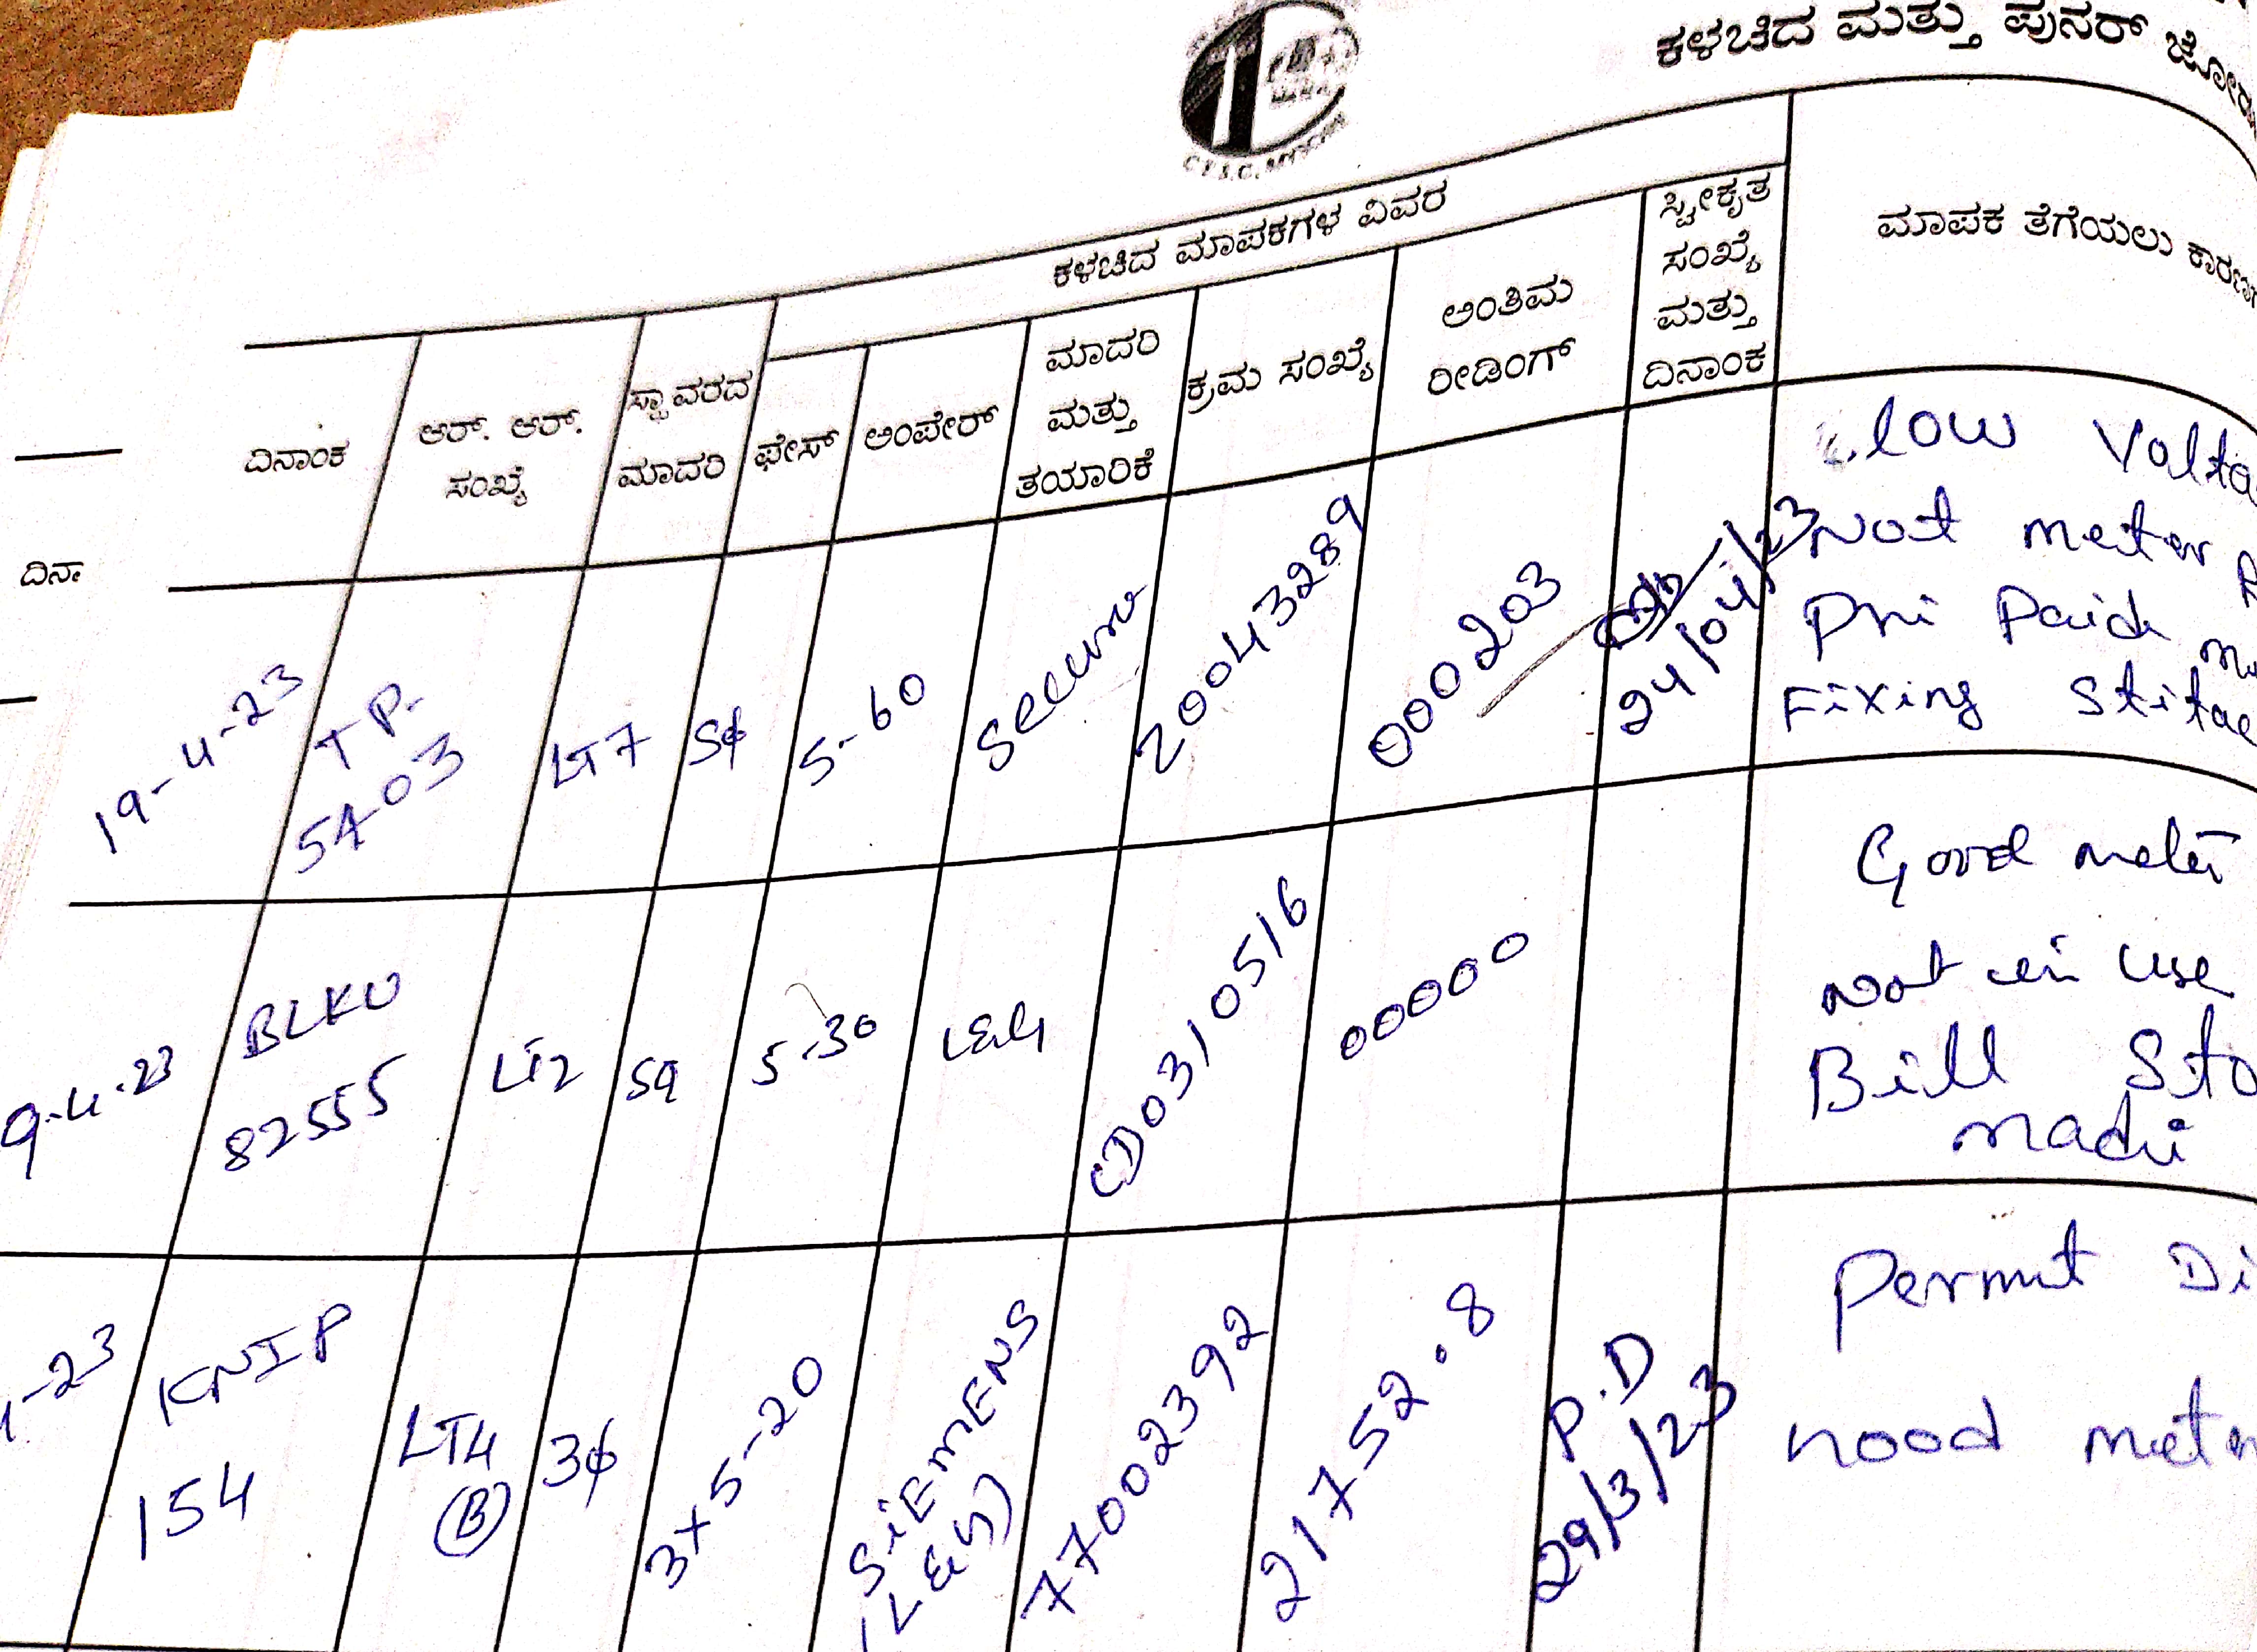 ಕಳಚಿದ ಮತ್ತು ಪುನರ್
ಕಳಚಿದ ಮಾಪಕಗಳ ವಿವರ
ದಿನಾಂಕ
ಆರ್. ಆರ್.
ಸಂಖ್ಯೆ
ಸ್ಥಾವರದ
ಮಾದರಿ
ಫೇಸ್
ಅಂಪೇರ್
ಮಾದರಿ
ಮತ್ತು
ತಯಾರಿಕೆ
ಕ್ರಮ ಸಂಖ್ಯೆ
ಅಂತಿಮ
ರೀಡಿಂಗ್
ಸ್ವೀಕೃತ
ಸಂಖ್ಯೆ
ಮತ್ತು
ದಿನಾಂಕ
ಮಾಪಕ ತೆಗೆಯಲು
ದಿನಾ
19-4-23
TP.
5403
LT7
Sφ
5-60
Secure
20043289
000203
24/04/23
low Volta
Not meter
Paid
Fixing
9-4-23
BLKU
82555
LT2
5-30
L&G
CD0310516
00000
Good meter
Not in use
Bill Sto
madi
-23
KNIP
154
LT4
(B)
3φ
3x5-20
SiEMENS
(L&G)
77002392
21752.8
P.D
29/3/23
Permut Di